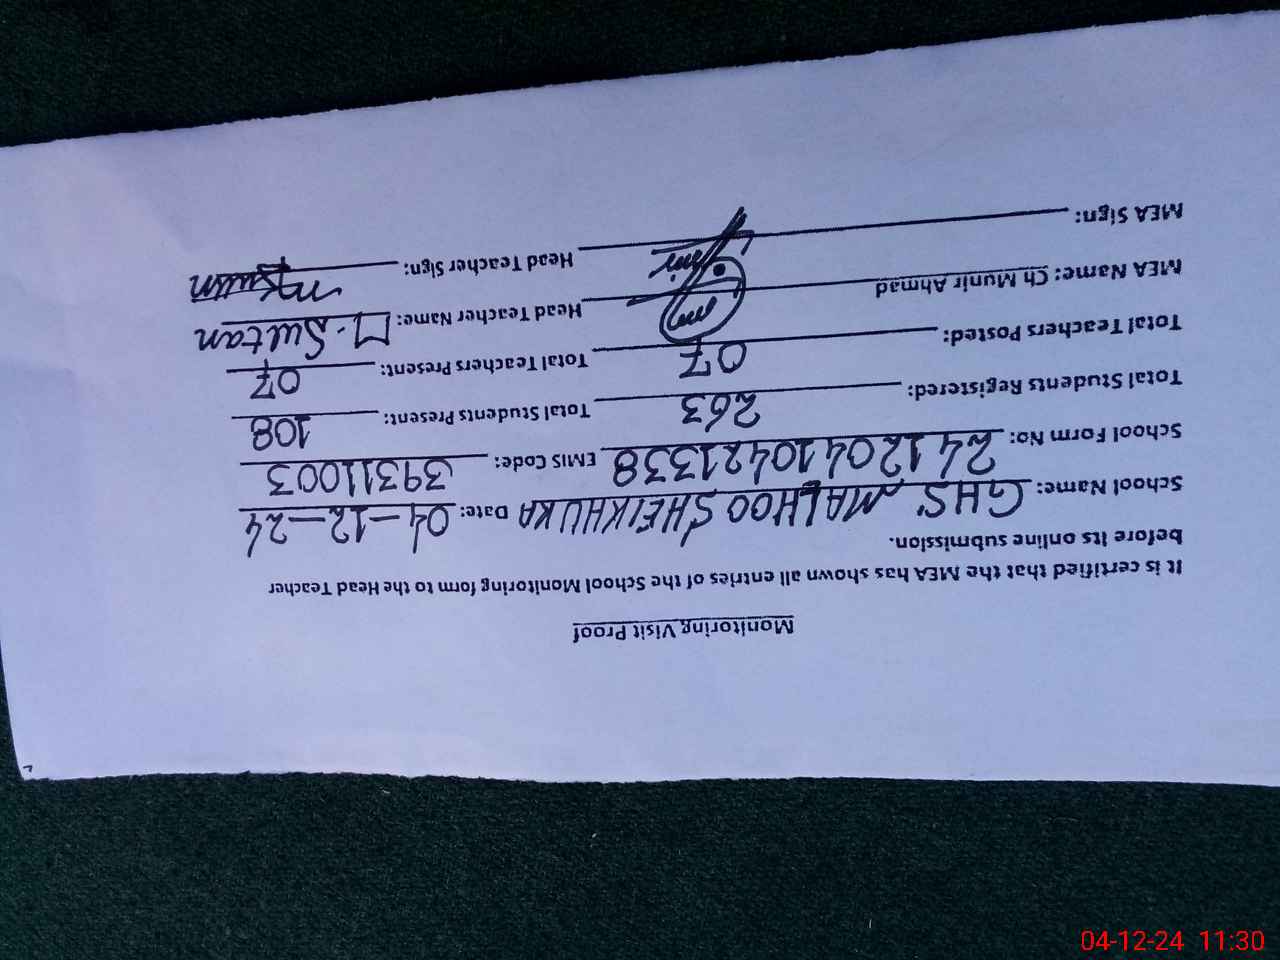 Monitoring Visit Proof
It is certified that the MEA has shown all entries of the School Monitoring form to the Head Teacher
before its online submission.
School Name: GHS MALHOO SHEIKHUKA Date: 04-12-24
School Form No: 2412041042 1338 EMIS Code: 39311003
Total Students Registered: 263 Total Students Present: 108
Total Teachers Posted: 07 Total Teachers Present: 07
MEA Name: Ch Munir Ahmad Head Teacher Name: M. Sultan
MEA Sign: Head Teacher Sign:
04-12-24 11:30